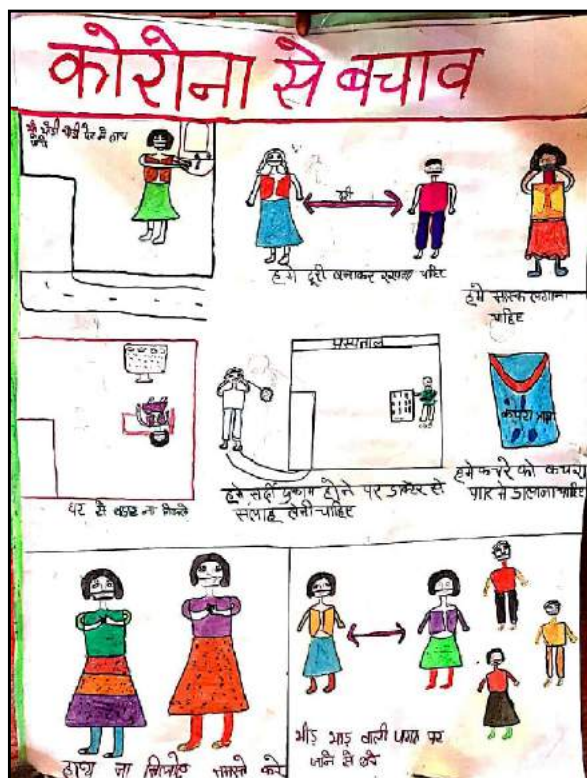 कोरोना से बचाव
थोड़ी थोड़ी देर में हाथ
धोये
दूरी
हमें दूरी बनाकर रखना चाहिए
हमें मास्क लगाना
चाहिए
अस्पताल
कचरा पात्र
घर से बाहर ना निकले
हमें सर्दी जुकाम होने पर डाक्टर से
सलाह लेनी चाहिए
हमें कचरे को कचरा
पात्र में डालना चाहिए
हाथ ना मिलाये नमस्ते करे
भीड़ भाड़ वाली जगह पर
जाने से बचे